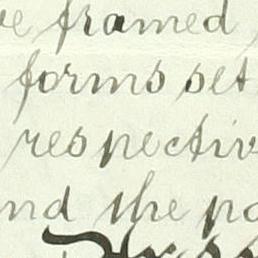 framed
forms set
respectiv
nd the